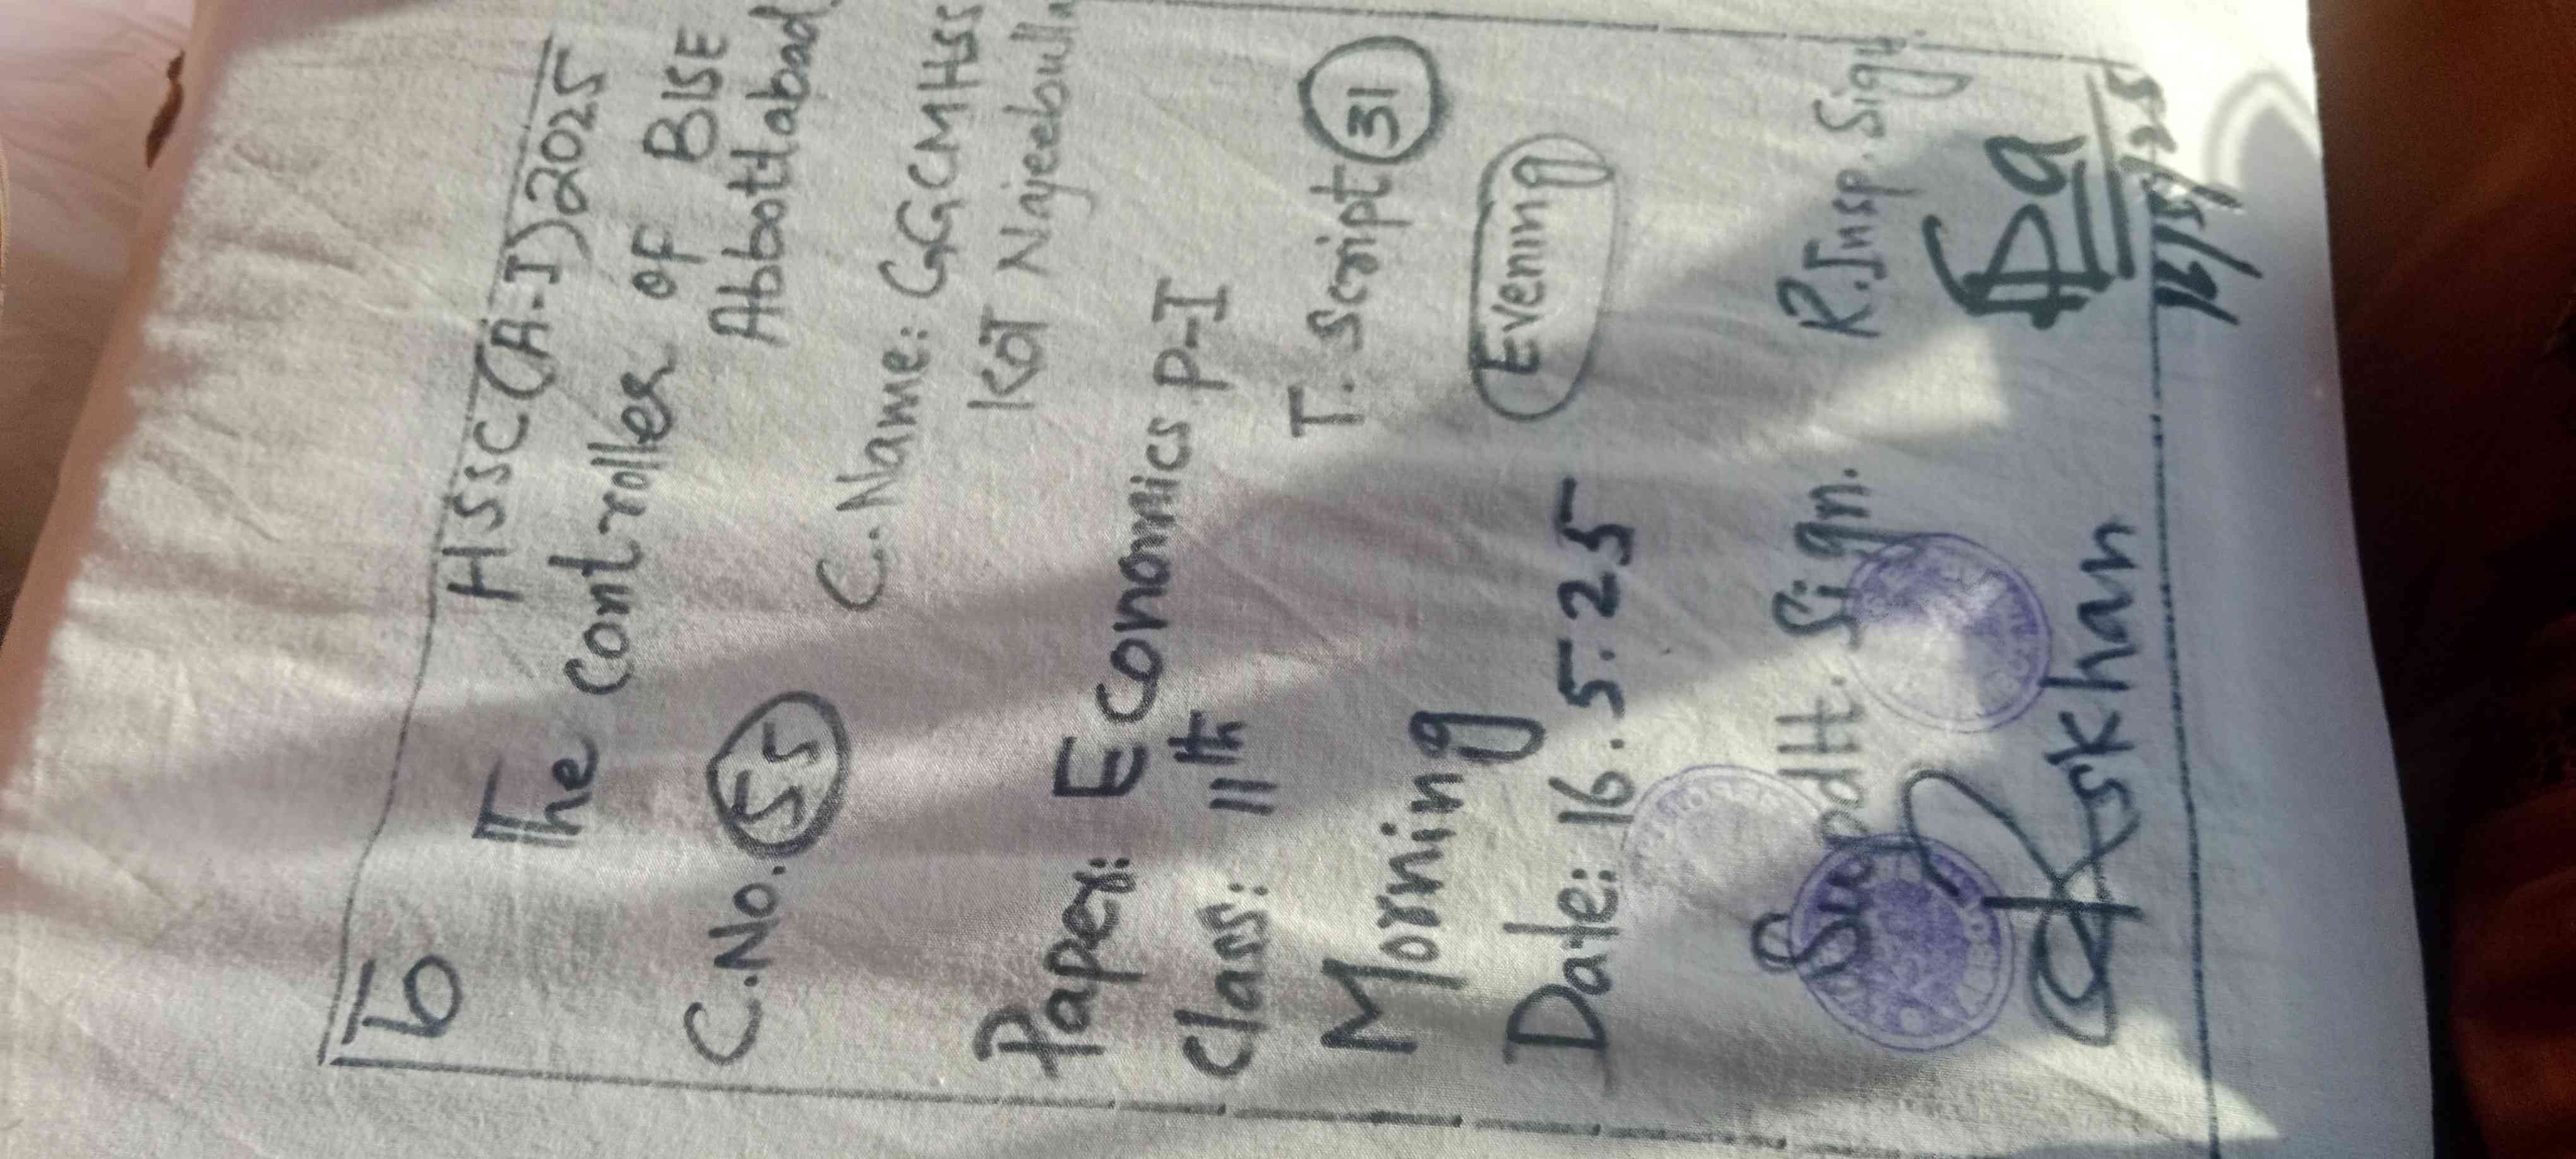 HSSC (A-I) 2025
To
The Controller of BISE
Abbottabad
C.No. 55
C.Name: GGCMHSS
KOT Najeebulla
Paper: Economics P-I
Class: 11th
T. Script 31
Morning
Evening
Date: 16.5.25
Supdtt. Sign.
R.Insp. Sign.
khan
16/5/25